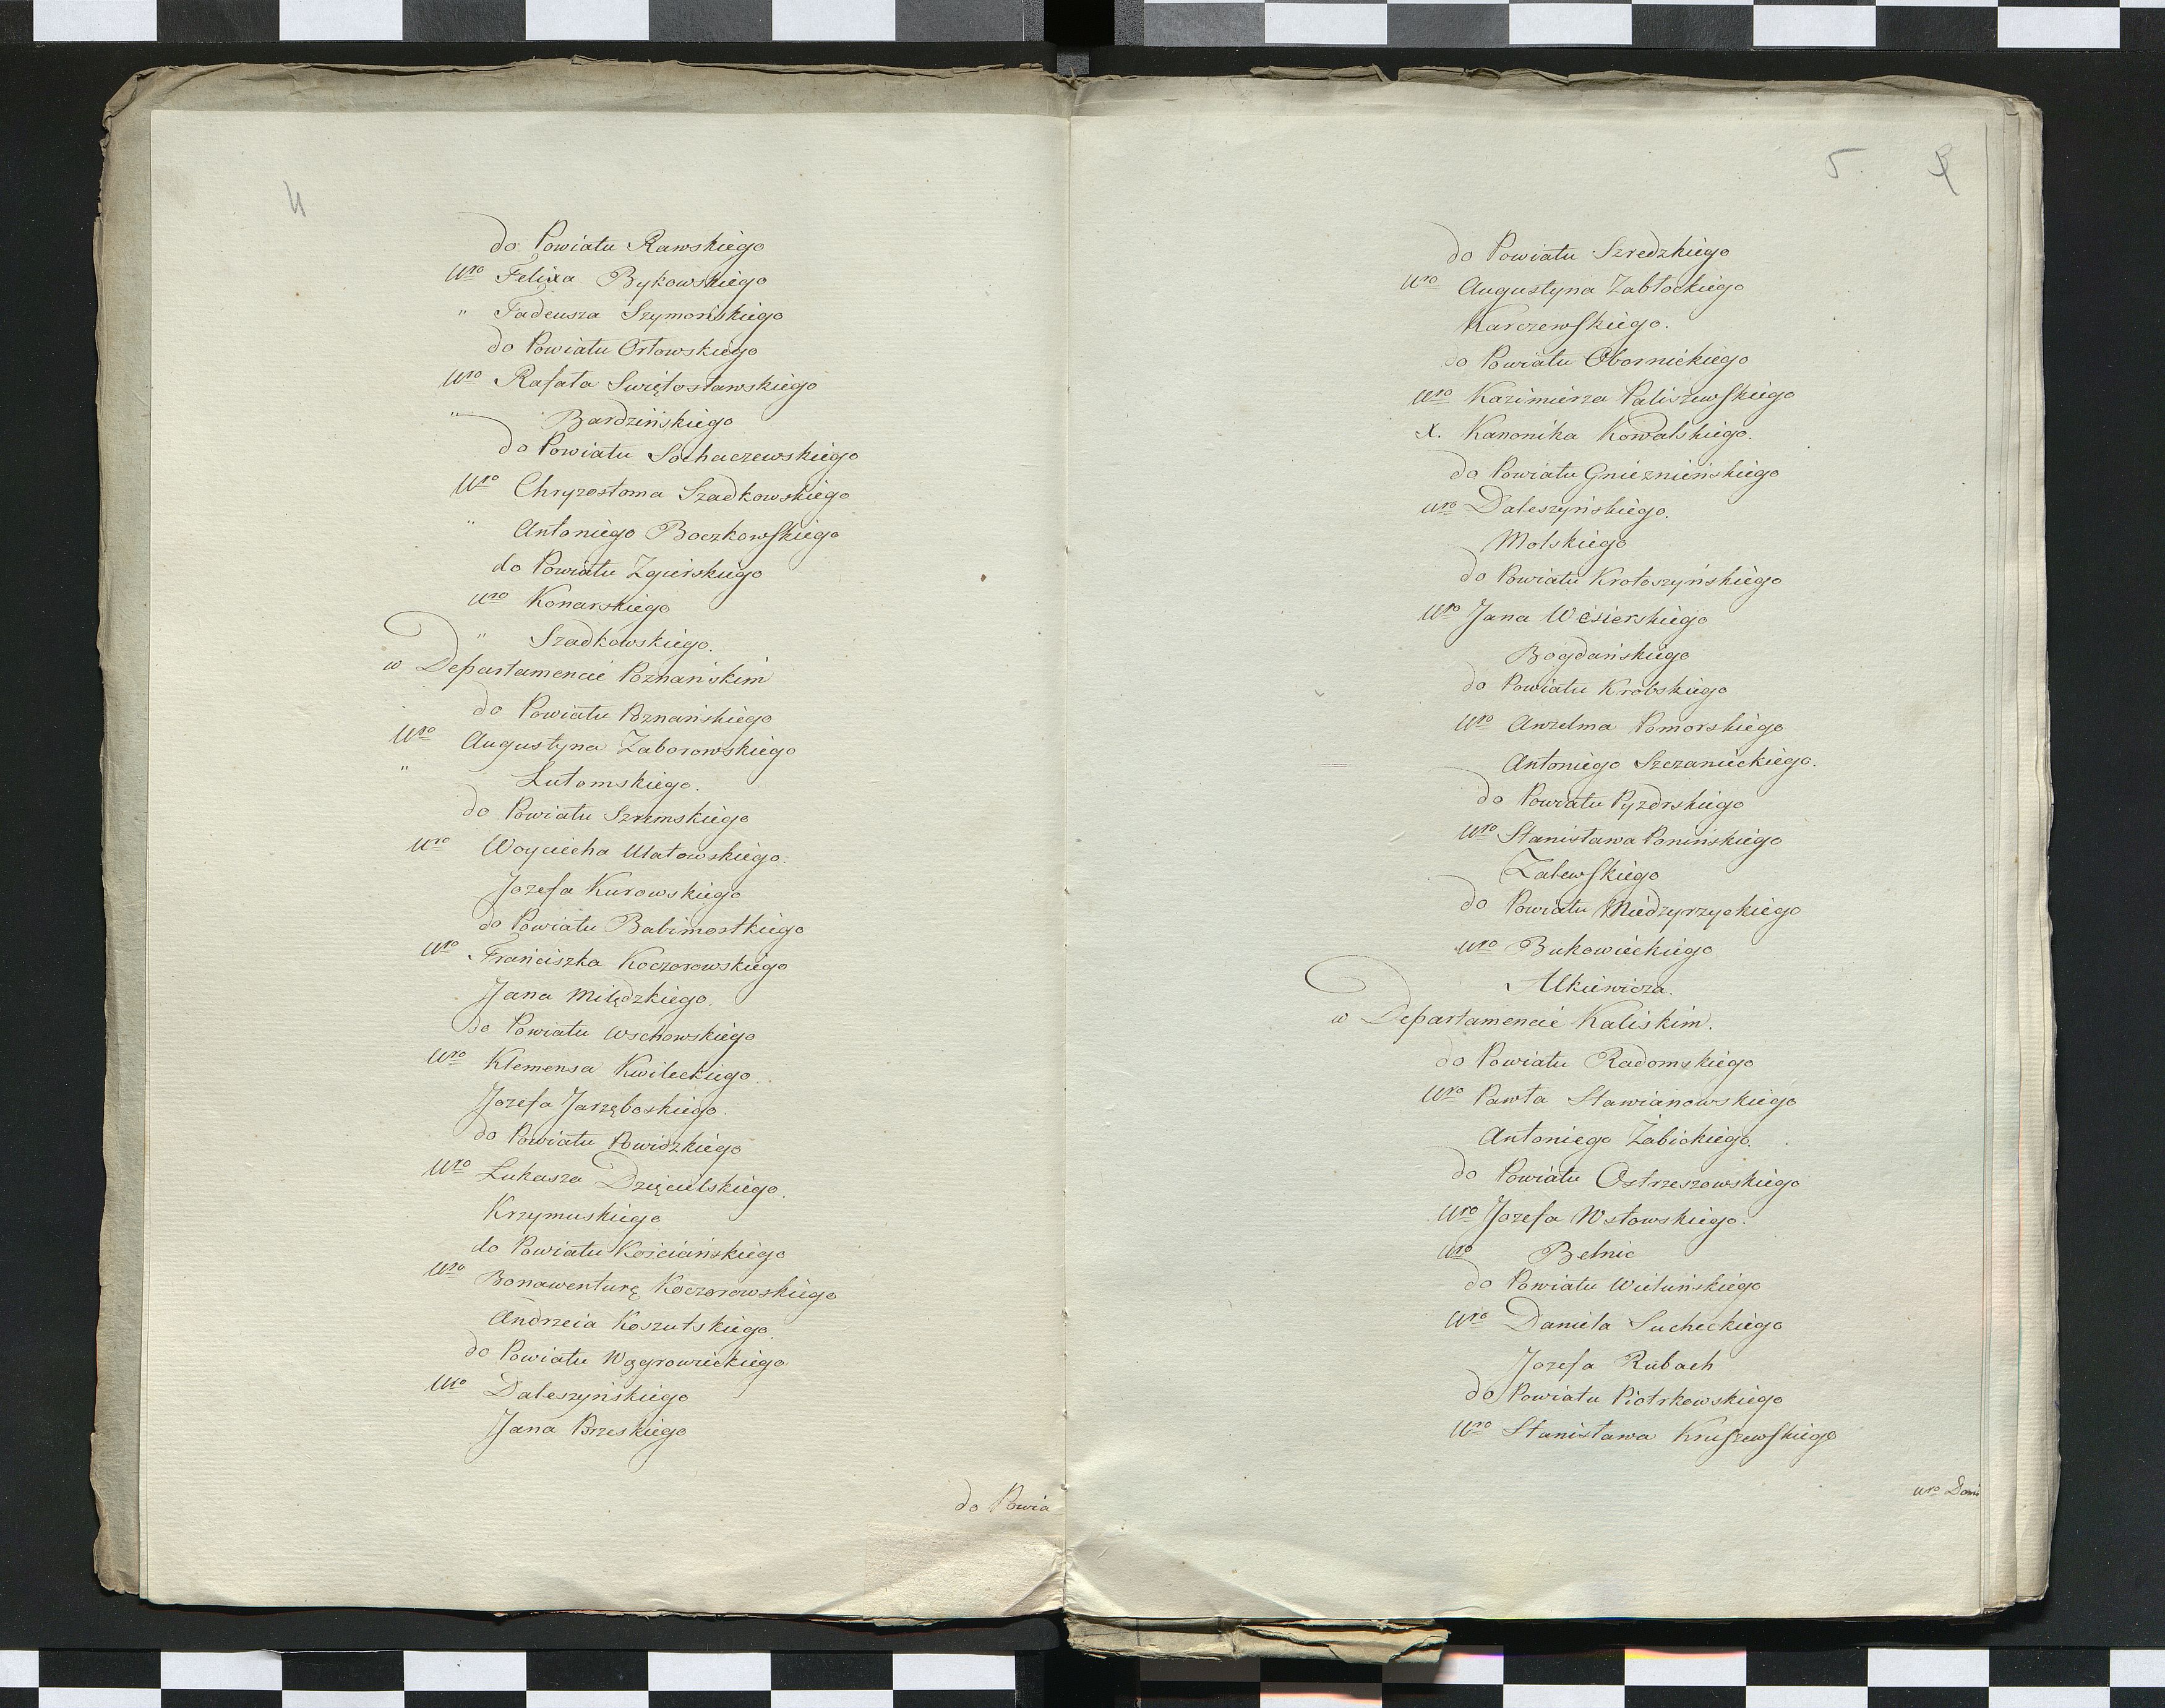 4
do Powiatu Rawskiego
Uro Felixa Bykowskiego
" Tadeusza Szymońskiego
do Powiatu Orłowskiego
Uro Rafała Swiętosławskiego
" Bardzińskiego
do Powiatu Sochaczewskiego
Uro Chryzostoma Szadkowskiego
" Antoniego Boczkowskiego
do Powiatu Zgierskiego
Uro Konarskiego
" Szadkowskiego.
w Departamencie Poznańskim
do Powiatu Poznańskiego
Uro Augustyna Zaborowskiego
" Lutomskiego.
do Powiatu Szremskiego
Uro Woyciecha Ulatowskiego.
Jozefa Kurowskiego
do Powiatu Babimostkiego
Uro Franciszka Koczorowskiego
Jana Milędzkiego.
do Powiatu Wschowskiego
Uro Klemensa Kwileckiego.
Jozefa Jarzęboskiego.
do Powiatu Powidzkiego
Uro Łukasza Dzięcielskiego.
Krzymuskiego
do Powiatu Kościańskiego
Uro Bonawenturę Koczorowskiego
Andrzeia Koszutskiego.
do Powiatu Wągrowieckiego
Uro Daleszyńskiego
Jana Brzeskiego
do Powia
5.
do Powiatu Szredzkiego
Uro Augustyna Zabłockiego
Karczewskiego.
do Powiatu Obornickiego
Uro Kazimierza Paliszewskiego
X. Kanonika Kowalskiego.
do Powiatu Gnieznieńskiego
Uro Daleszyńskiego.
Molskiego
do Powiatu Krotoszyńskiego
Uro Jana Wesierskiego
Bogdańskiego
do Powiatu Krobskiego
Uro Anzelma Pomorskiego
Antoniego Szczanieckiego.
do Powiatu Pyzdrskiego
Uro Stanisława Ponińskiego
Zalewskiego
do Powiatu Miedzyrzyckiego
Uro Bukowieckiego
Alkiewicza.
w Departamencie Kaliskim.
do Powiatu Radomskiego
Uro Pawła Sławianowskiego
Antoniego Żabickiego.
do Powiatu Ostrzeszowskiego
Uro Jozefa Wstowskiego.
Uro Belnic
do Powiatu Wieluńskiego
Uro Daniela Sucheckiego
Jozefa Rubach
do Powiatu Piotrkowskiego
Uro Stanisława Kruszewskiego
Uro